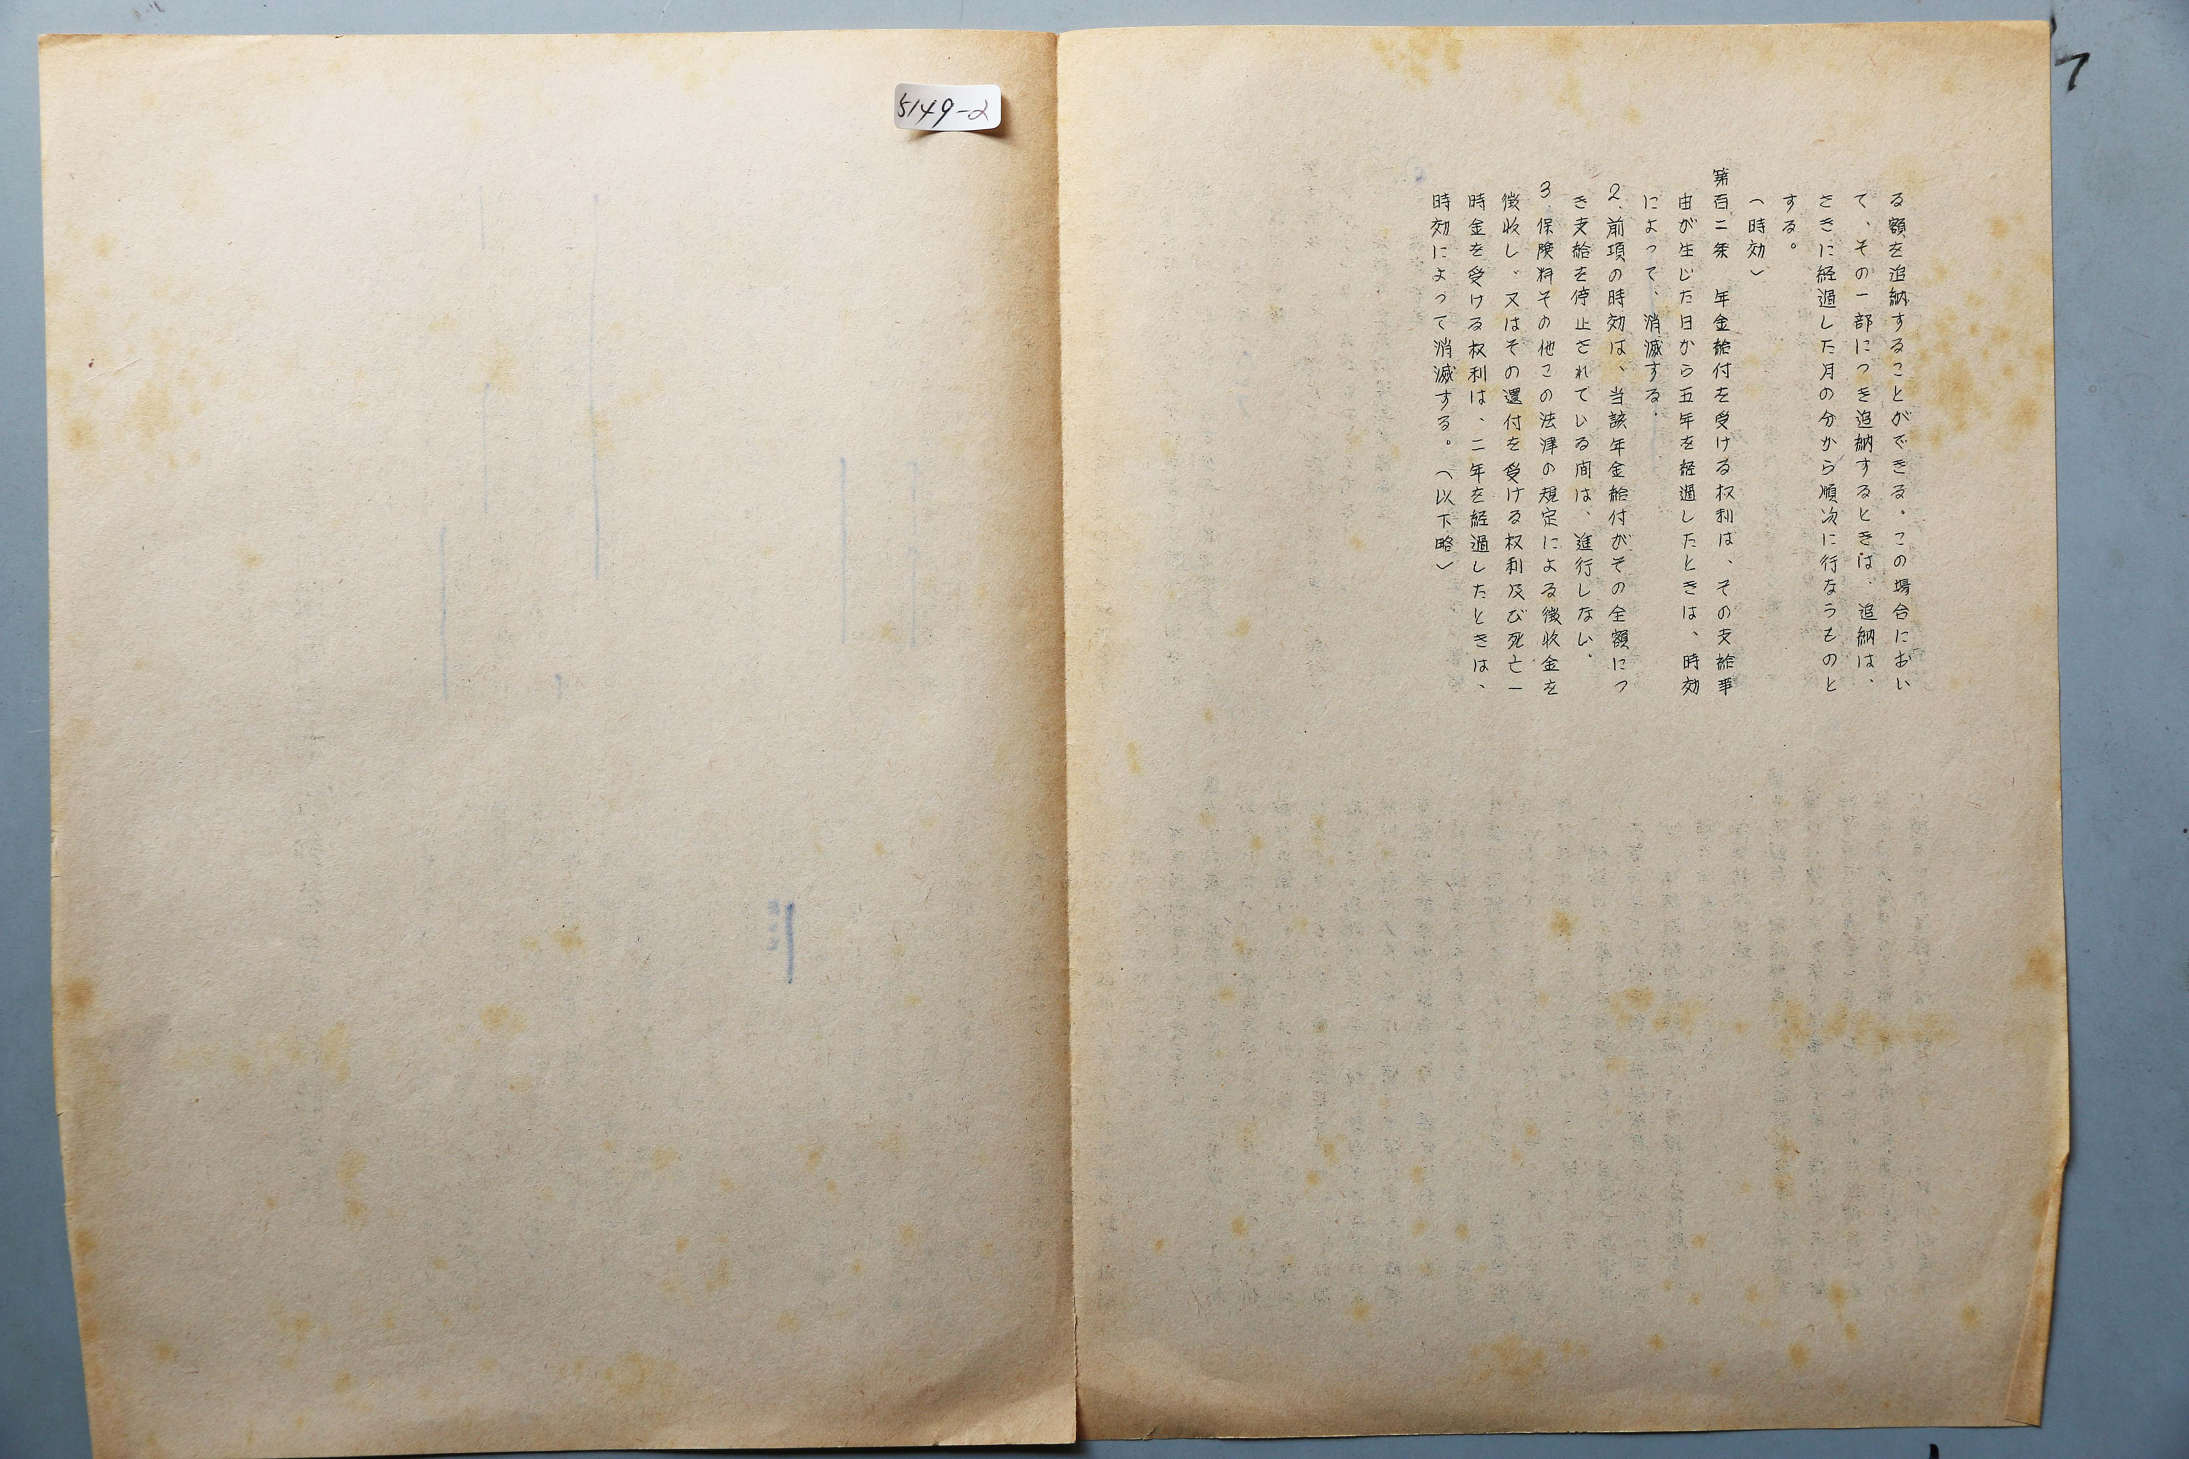 る額を追納することができる。この場合におい
て、その一部につき追納するときは、追納は、
さきに経過した月の分から順次に行なうものと
する。
(時効)
第百二条 年金給付を受ける权利は、その支給事
由が生じた日から五年を経過したときは、時効
によって、消滅する。
2、前項の時効は、当該年金給付がその全額につ
き支給を停止されている間は、進行しない。
3、保険料その他この法津の規定による徴収金を
徴収し、又はその還付を受ける权利及び死亡一
時金を受ける权利は、二年を経過したときは、
時効によって消滅する。(以下略)
5149-2
7